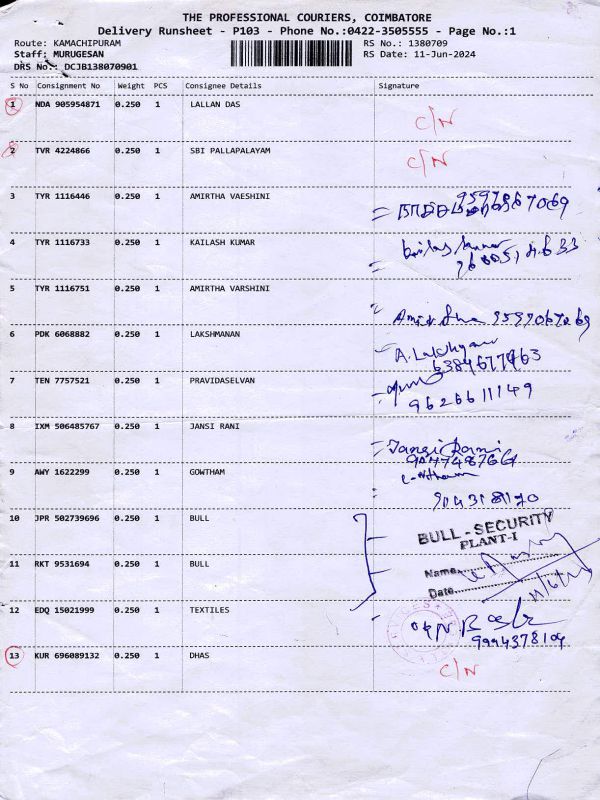 THE PROFESSIONAL COURIERS, COIMBATORE
Delivery Runsheet - P103 - Phone No.:0422-3505555 - Page No.:1
Route: KAMACHIPURAM RS No.: 1380709
Staff: MURUGESAN RS Date: 11-Jun-2024
DRS No.: DCJB138070901
S No Consignment No Weight PCS Consignee Details Signature
1 NDA 905954871 0.250 1 LALLAN DAS C/N
2 TVR 4224866 0.250 1 SBI PALLAPALAYAM C/N
3 TYR 1116446 0.250 1 AMIRTHA VAESHINI
4 TYR 1116733 0.250 1 KAILASH KUMAR
5 TYR 1116751 0.250 1 AMIRTHA VARSHINI
6 PDK 6068882 0.250 1 LAKSHMANAN
A. Lakshman
6384677463
7 TEN 7757521 0.250 1 PRAVIDASELVAN
9626611149
8 IXM 506485767 0.250 1 JANSI RANI
Jansi Rani
9 AWY 1622299 0.250 1 GOWTHAM
Gowtham
10 JPR 502739696 0.250 1 BULL
BULL - SECURITY
PLANT-I
11 RKT 9531694 0.250 1 BULL
Name
Date
12 EDQ 15021999 0.250 1 TEXTILES
9994378104
13 KUR 696089132 0.250 1 DHAS C/N